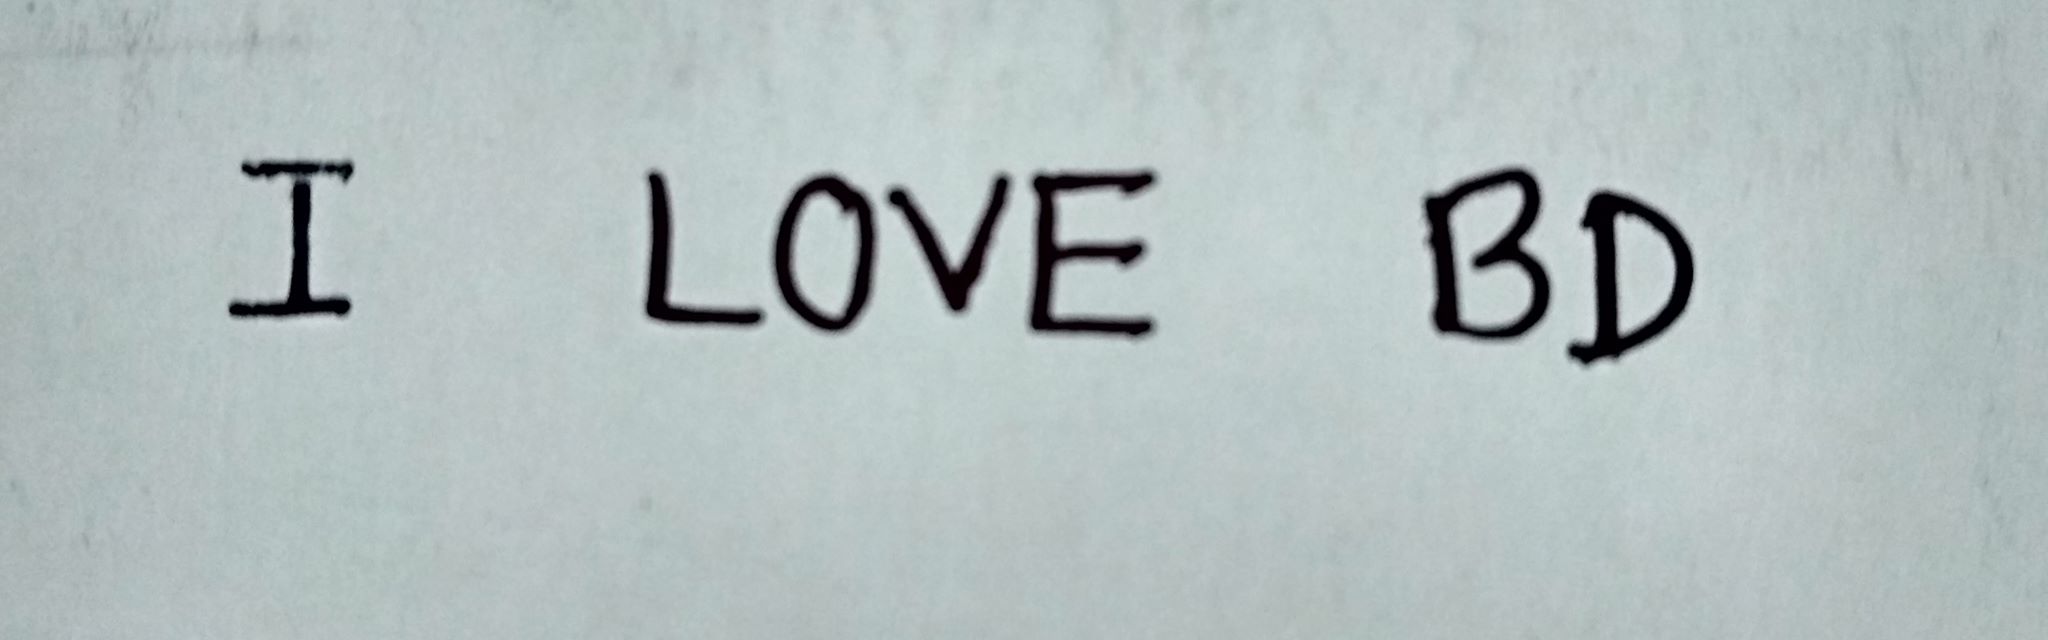 I LOVE BD